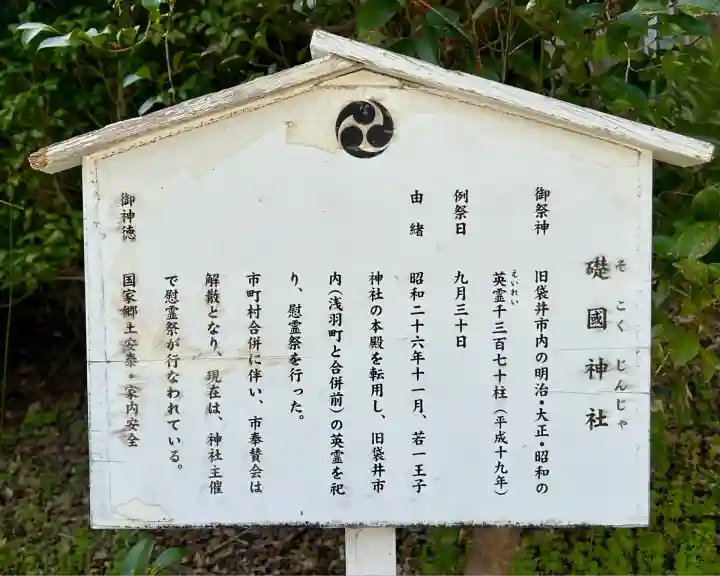 礎國神社
そこくじんじゃ
御祭神 旧袋井市内の明治・大正・昭和の
英霊千三百七十柱（平成十九年）
えいれい
例祭日 九月三十日
由緒 昭和二十六年十一月、若一王子
神社の本殿を転用し、旧袋井市
内（浅羽町と合併前）の英霊を祀
り、慰霊祭を行った。
市町村合併に伴い、市奉賛会は
解散となり、現在は、神社主催
で慰霊祭が行なわれている。
御神徳 国家郷土安泰・家内安全